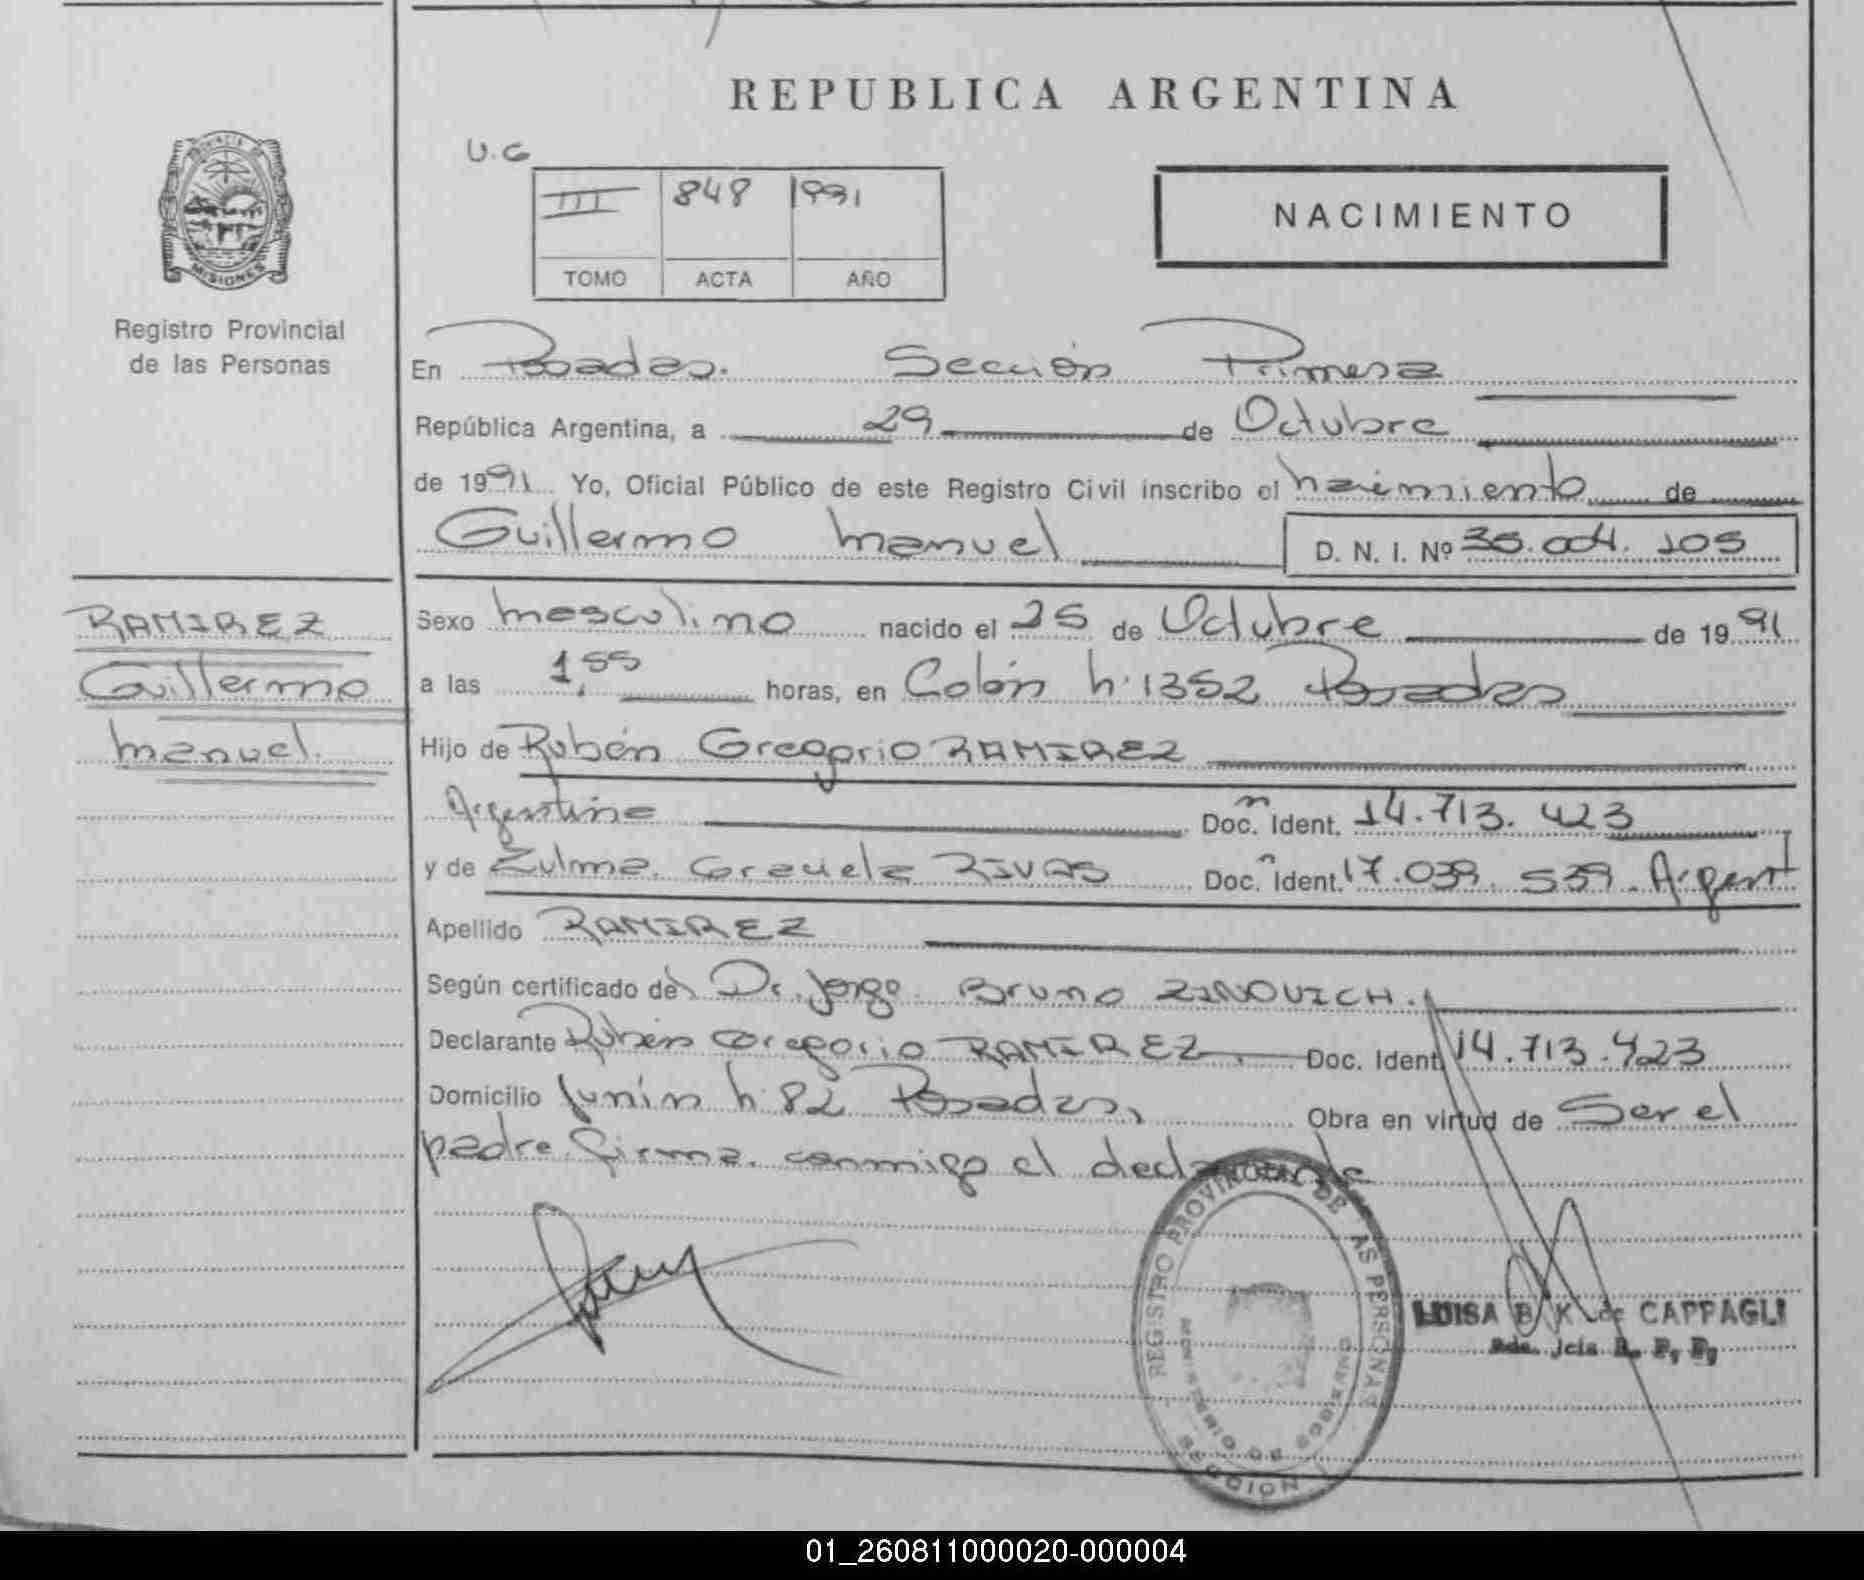 REPUBLICA ARGENTINA
U.C
III 848 1991
TOMO ACTA AÑO
NACIMIENTO
PROVINCIA DE
MISIONES
Registro Provincial
de las Personas
En Posadas. Sección Primera
República Argentina, a 29 de Octubre
de 1991 Yo, Oficial Público de este Registro Civil inscribo el nacimiento de
Guillermo Manuel D. N. I. Nº 36.004.105
RAMIREZ
Guillermo
Manuel.
Sexo masculino nacido el 25 de Octubre de 1991
a las 1,55 horas, en Colón n. 1352 Posadas
Hijo de Rubén Gregorio RAMIREZ
Argentino Doc. Ident. 14.713.423
y de Zulma Graciela RIVAS Doc. Ident. 17.039.539. Argent
Apellido RAMIREZ
Según certificado de Dr. Jorge Bruno ZINOVICH.
Declarante Rubén Gregorio RAMIREZ. Doc. Ident 14.713.423
Domicilio Junín n. 82 Posadas, Obra en virtud de Ser el
padre. firma conmigo el declarante
REGISTRO PROVINCIAL DE LAS PERSONAS
MINISTERIO DE GOBIERNO
SECCION
LUISA B K de CAPPAGLI
01_260811000020-000004